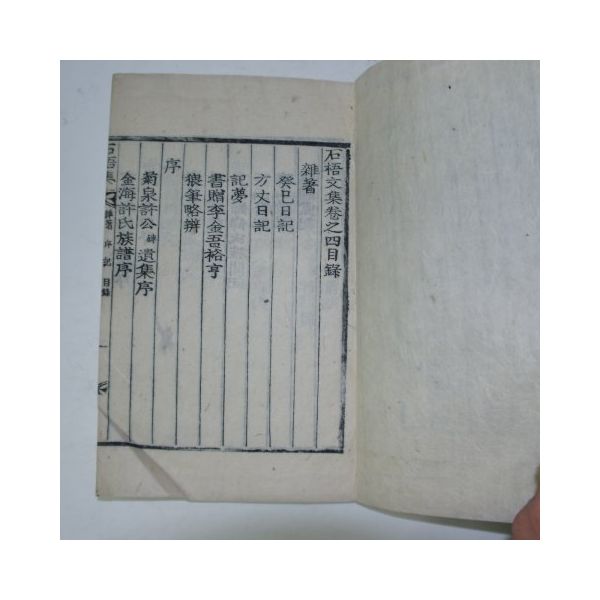 石梧文集卷之四目錄
雜著
癸巳日記
方丈日記
記夢
書贈李金吾裕亨
猿筆略辨
序
菊泉許公磚遺集序
金海許氏族譜序
石梧集 雜著 序 記 目錄 一